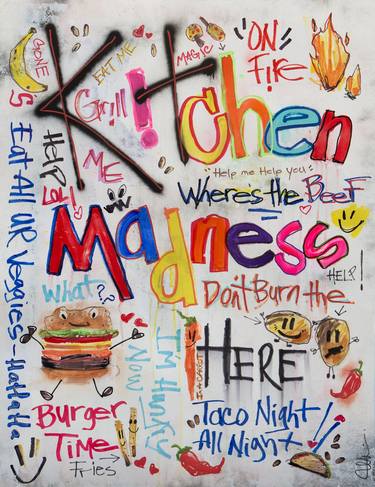 GONE
EAT ME
MAGIC
"ON
FiRe
Kitchen
Grill
ME
Help?
"Help me Help you"
Where's the BeeF
Eat All UR Veggies - Hahaha
Madness
HELP?!
What??
Don't Burn the
HERE
I'm Hungry
Now
Burger
Time
Fries
Taco Night!
All Night!